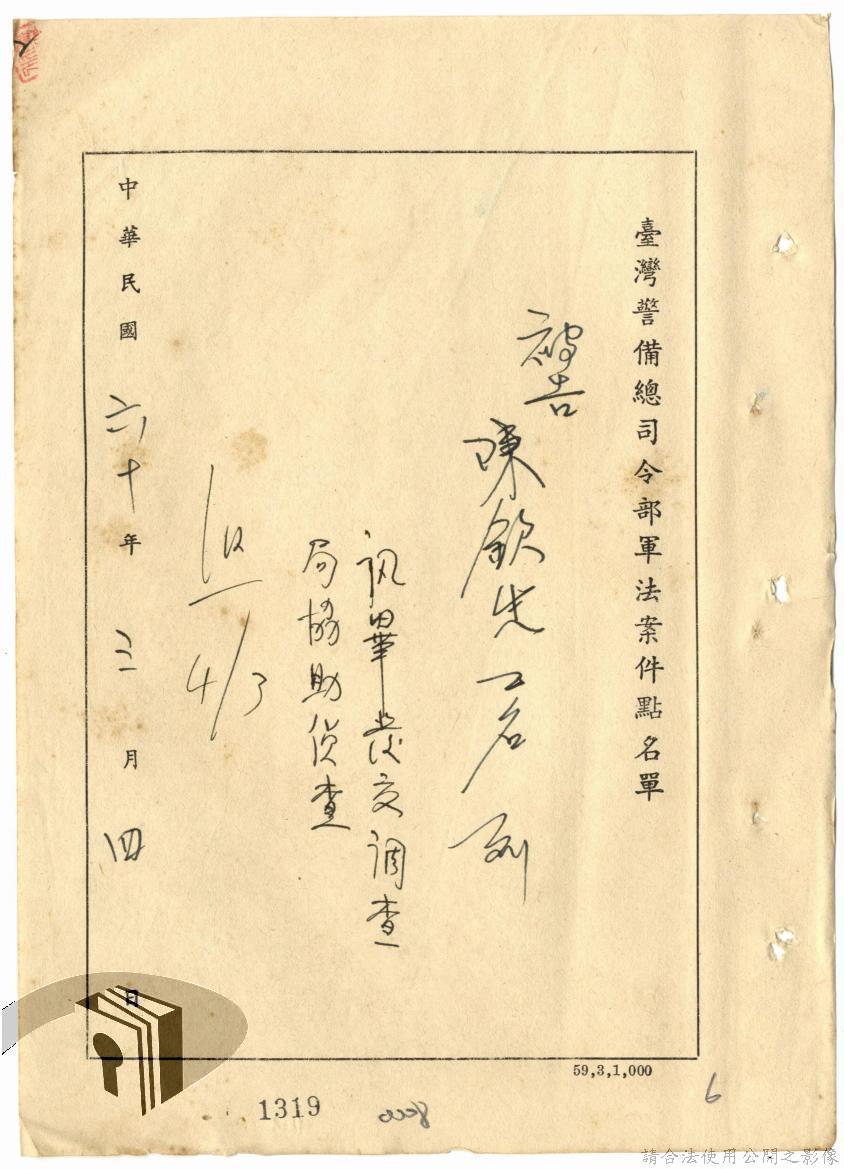 臺灣警備總司令部軍法案件點名單
被告
陳欽生一名到
訊畢發交調查
局協助偵查
4/3
中華民國六十年三月四日
59,3,1,000
1319
6
請合法使用公開之影像